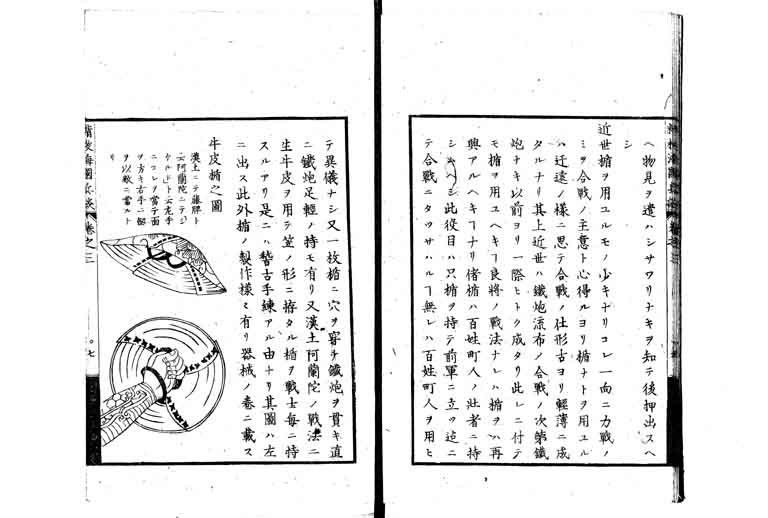 ヘ物見ヲ遣ハシサワリナキヲ知テ後押出スヘ
シ
近世楯ヲ用ユルモノ少キナリコレ一向ニ力戰ノ
ミヲ合戰ノ主意ト心得ルヨリ楯ナトヲ用ユル
ハ迂遠ノ樣ニ思テ合戰ノ仕形古ヨリ輕薄ニ成
タルナリ其上近世ハ鐵炮流布ノ合戰ノ次第鐵
炮ナキ以前ヨリ一際ヒトク成タリ此レニ付テ
モ楯ヲ用ユヘキ良將ノ戰法ナレハ楯ヲハ再
興アルヘキナリ偖楯ハ百姓町人ノ壯者ニ持
シムヘシ此役目ハ只楯ヲ持テ前軍ニ立ツ迄ニ
テ合戰ニタツサハル無レハ百姓町人ヲ用ヒ
テ異儀ナシ又一枚楯ニ穴ヲ穿チ鐵炮ヲ貫キ直
ニ鐵炮足輕ノ持モ有リ又漢土阿蘭陀ノ戰法ニ
生牛皮ヲ用テ笠ノ形ニ拵タル楯ヲ戰士每ニ持
スルアリ是ニハ稽古手練アル由ナリ其圖ハ左
ニ出ス此外楯ノ製作樣々有リ器械ノ卷ニ載ス
牛皮楯之圖
漢土ニテ藤牌ト
云阿蘭陀ニテシ
ルトト云左手
ニコレヲ當テ面
ヲ方キ右手ニ
ヲ以敵ニ當ルト
リ
海國兵談 卷之三
七